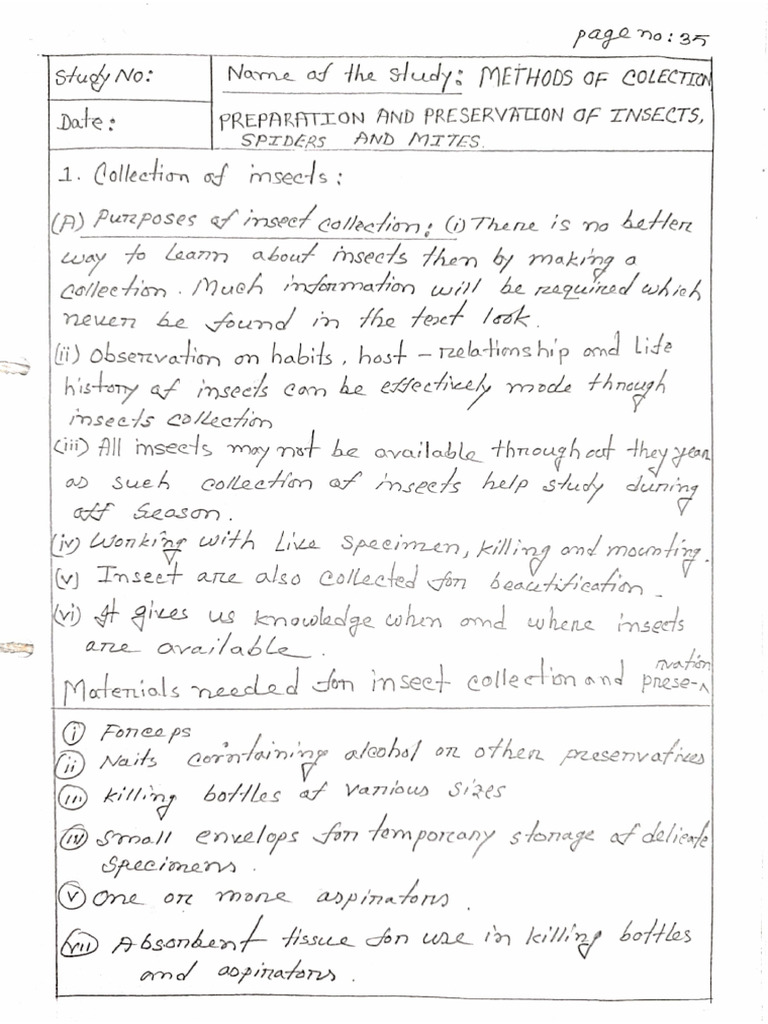 page no: 35
Study No:
Name of the study: METHODS OF COLECTION
Date:
PREPARATION AND PRESERVATION OF INSECTS,
SPIDERS AND MITES.
1. Collection of insects:
(A) Purposes of insect collection: (i) There is no better
way to learn about insects then by making a
collection. Much information will be required which
never be found in the text look.
(ii) Observation on habits, host - relationship and life
history of insects can be effectively mode through
insects collection
(iii) All insects may not be available throughout they year
as such collection of insects help study during
off season.
(iv) Working with live specimen, killing and mounting.
(v) Insect are also collected for beautification.
(vi) It gives us knowledge when and where insects
are available.
Materials needed for insect collection and prese-rvation
(i) Forceps
(ii) Naits containing alcohol or other preservatives
(iii) killing bottles of various sizes
(iv) small envelops for temporany storage of delicate
specimens.
(v) One or more aspirators.
(vii) Absorbent tissue for use in killing bottles
and aspirators.